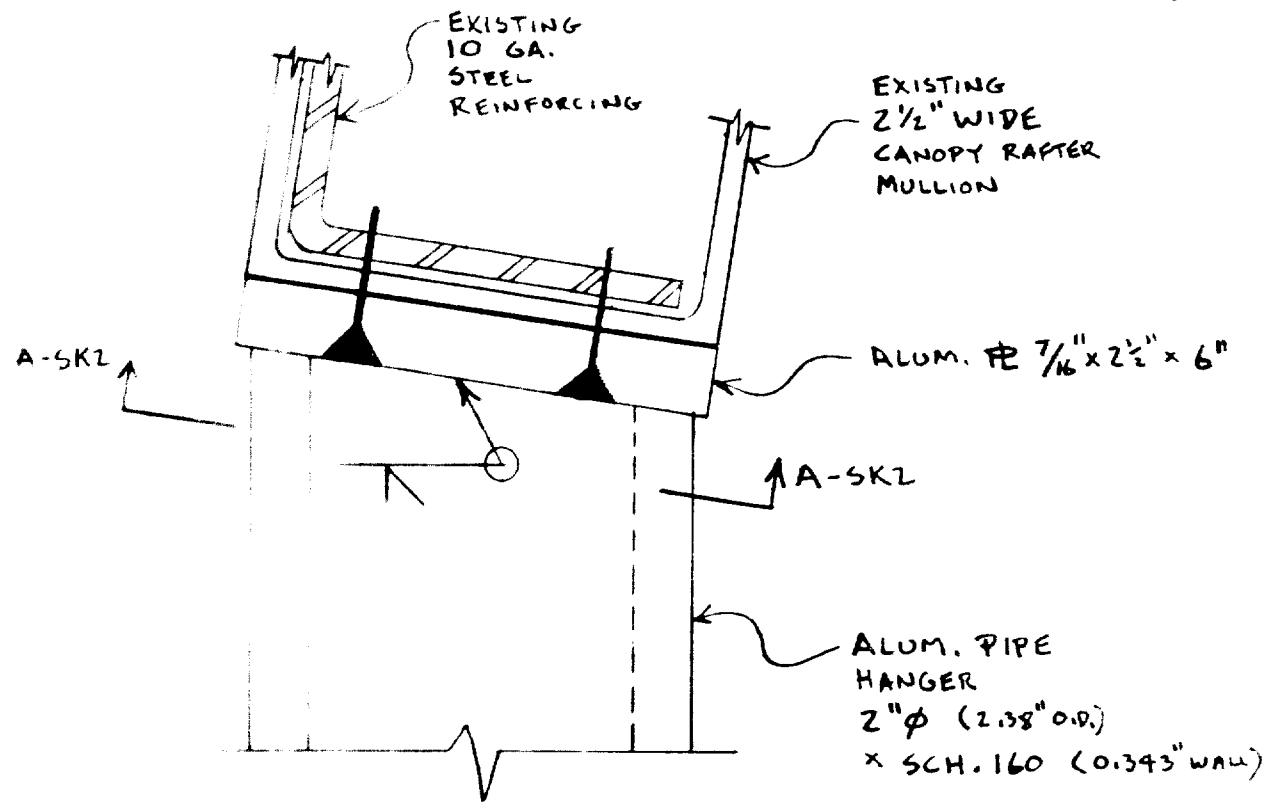 EXISTING
10 GA.
STEEL
REINFORCING
EXISTING
2½" WIDE
CANOPY RAFTER
MULLION
A-SK2
ALUM. PL 7/16" x 2½" x 6"
A-SK2
ALUM. PIPE
HANGER
2"φ (2.38" O.D.)
x SCH. 160 (0.343" WALL)